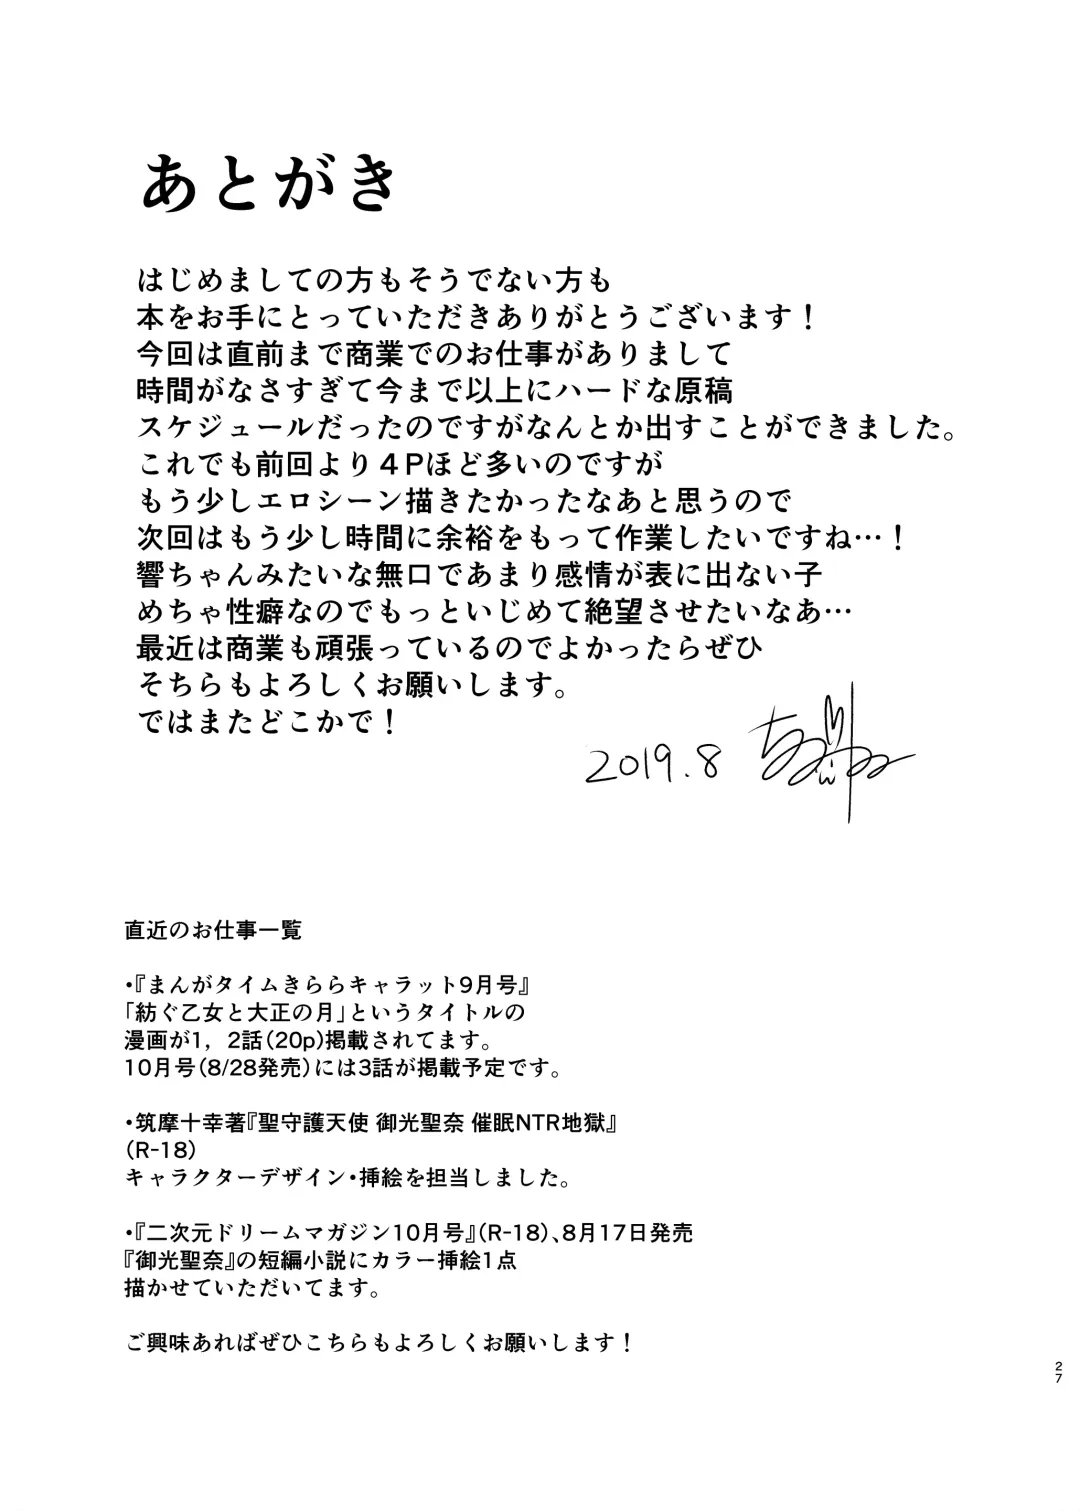 あとがき
はじめましての方もそうでない方も
本をお手にとっていただきありがとうございます！
今回は直前まで商業でのお仕事がありまして
時間がなさすぎて今まで以上にハードな原稿
スケジュールだったのですがなんとか出すことができました。
これでも前回より４Pほど多いのですが
もう少しエロシーン描きたかったなあと思うので
次回はもう少し時間に余裕をもって作業したいですね…！
響ちゃんみたいな無口であまり感情が表に出ない子
めちゃ性癖なのでもっといじめて絶望させたいなあ…
最近は商業も頑張っているのでよかったらぜひ
そちらもよろしくお願いします。
ではまたどこかで！
2019.8
直近のお仕事一覧
・『まんがタイムきららキャラット9月号』
「紡ぐ乙女と大正の月」というタイトルの
漫画が1，2話(20p)掲載されてます。
10月号(8/28発売)には3話が掲載予定です。
・筑摩十幸著『聖守護天使 御光聖奈 催眠NTR地獄』
(R-18)
キャラクターデザイン・挿絵を担当しました。
・『二次元ドリームマガジン10月号』(R-18)、8月17日発売
『御光聖奈』の短編小説にカラー挿絵1点
描かせていただいてます。
ご興味あればぜひこちらもよろしくお願いします！
27